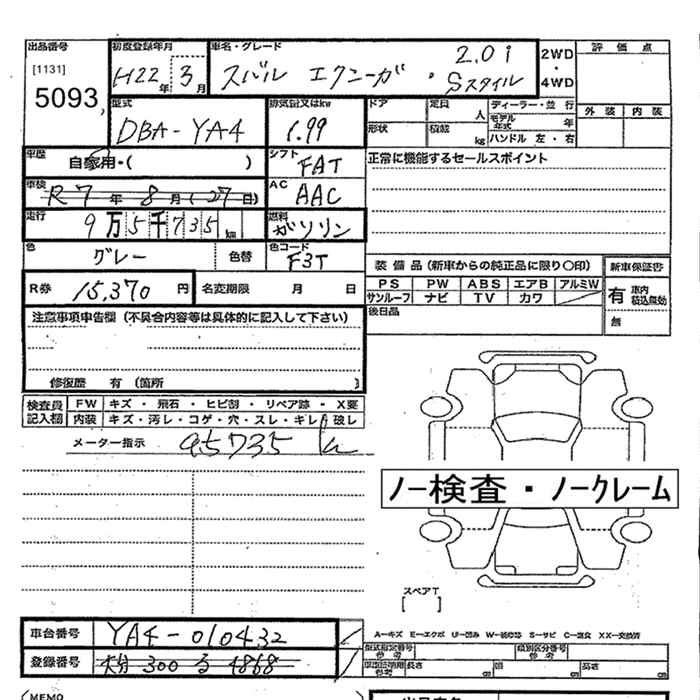 出品番号 初度登録年月 車名・グレード 評価点
[1131] 5093 H22年 3月 スバル エクシーガ・2.0i Sスタイル 2WD・4WD
型式 排気量又はkw ドア 定員 人 ディーラー・並行 外装 内装
DBA-YA4 1.99 形状 積載 kg モデル年式 年
ハンドル 左・右
車歴 自家用・( ) シフト FAT 正常に機能するセールスポイント
車検 R7年 8月 (27日) AC AAC
走行 9万5千735km 燃料 ガソリン
色 グレー 色替 色コード F3T
装備品(新車からの純正品に限り○印) 新車保証書
R券 15,370円 名変期限 月 日 PS PW ABS エアB アルミW 有 車内積込無効
サンルーフ ナビ TV カワ
注意事項申告欄(不具合内容等は具体的に記入して下さい) 後日品 無
修復歴 有 (箇所 )
検査員記入欄 FW キズ・飛石・ヒビ割・リペア跡・X要
内装 キズ・汚レ・コゲ・穴・スレ・キレ・破レ
メーター指示 95735 k
ノー検査・ノークレーム
スペアT
[ ]
車台番号 YA4-010432 A-キズ E-エクボ U-凹み W-補修跡 S-サビ C-腐食 XX-交換済
型式指定番号 参考 類別区分番号 参考
登録番号 大分 300 る 4868 車車証明用 参考 長さ 幅 高さ
MEMO 出品店名